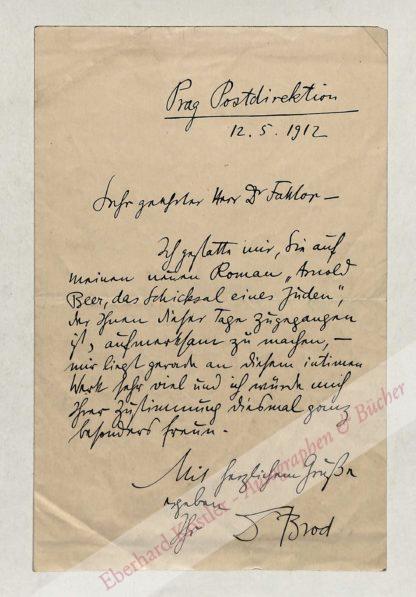 Prag Postdirektion
12. 5. 1912
Sehr geehrter Herr Dr Faktor –
Ich gestatte mir, Sie auf
meinen neuen Roman „Arnold
Beer, das Schicksal eines Juden“,
der Ihnen dieser Tage zugegangen
ist, aufmerksam zu machen, –
mir liegt gerade an diesem intimen
Werk sehr viel und ich würde mich
Ihrer Zustimmung diesmal ganz
besonders freuen.
Mit herzlichem Gruße
ergeben
Ihr Dr Brod
Eberhard Köstler - Autographen & Bücher